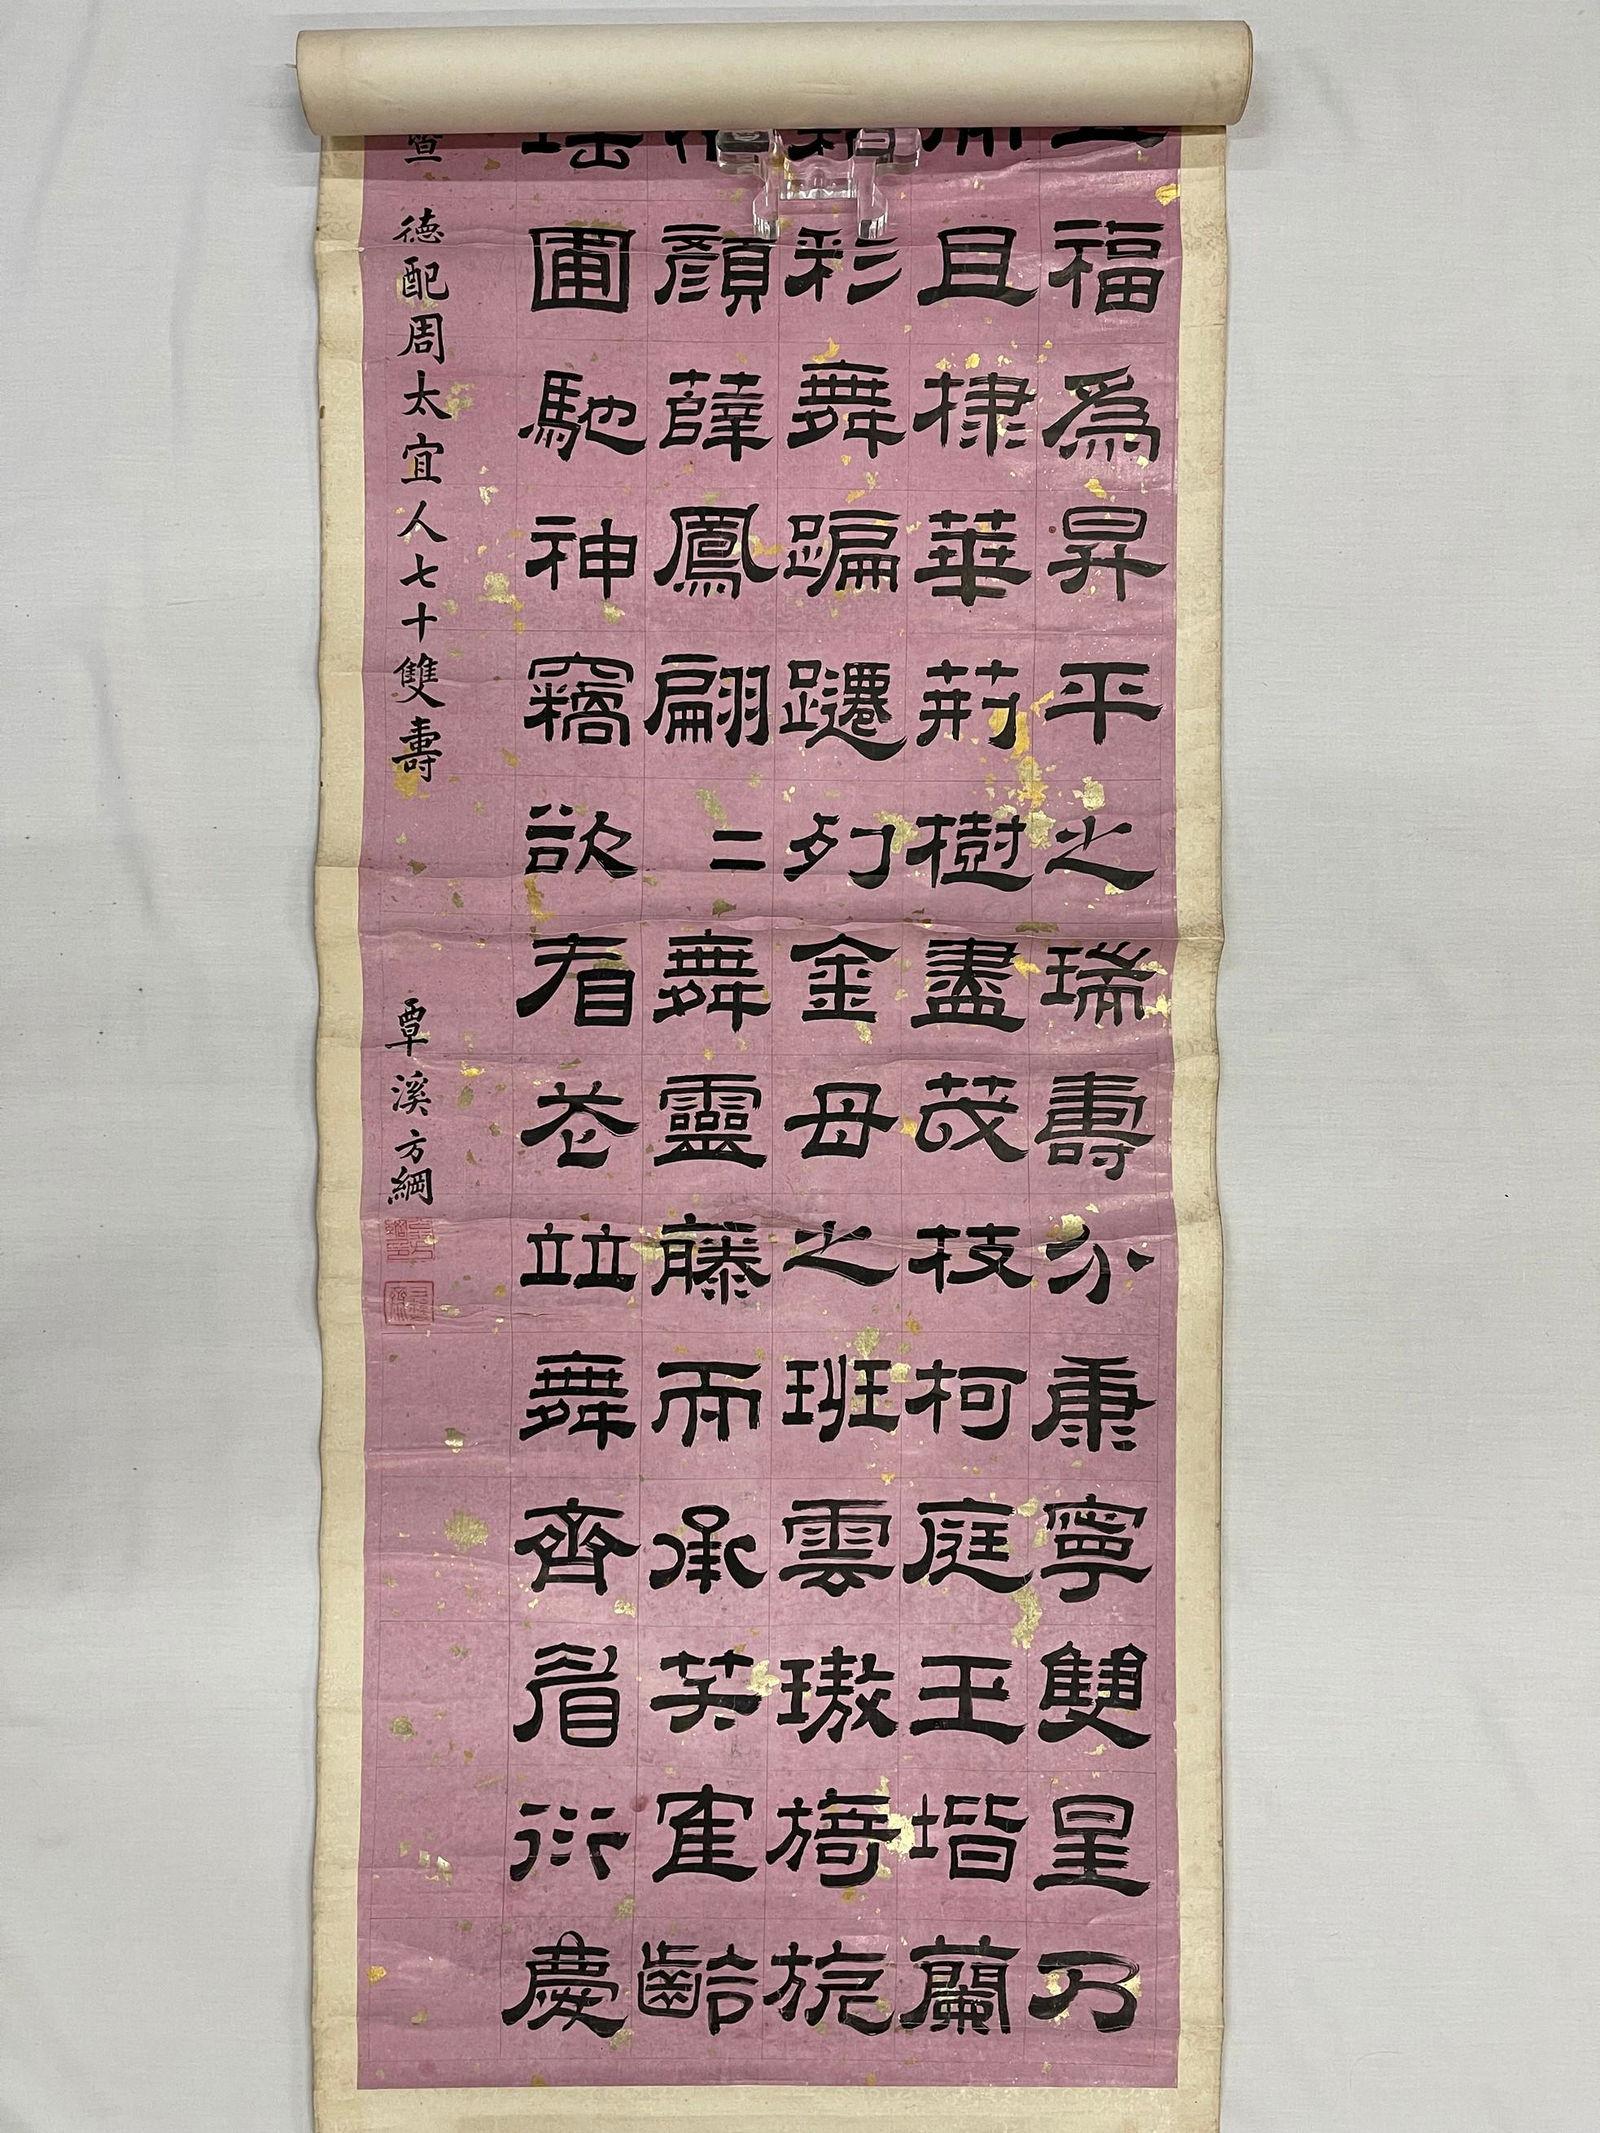 福為昇平之瑞壽介康寧雙星乃
且棣華荊樹盡茂枝柯庭玉堦蘭
彩舞蹁躚列金母之班雲璈旖旎
顏薜鳳翩二舞靈藤而承笑寉齡
瑶圃馳神竊欲看花竝舞齊眉衍慶
德配周太宜人七十雙壽
覃溪方綱